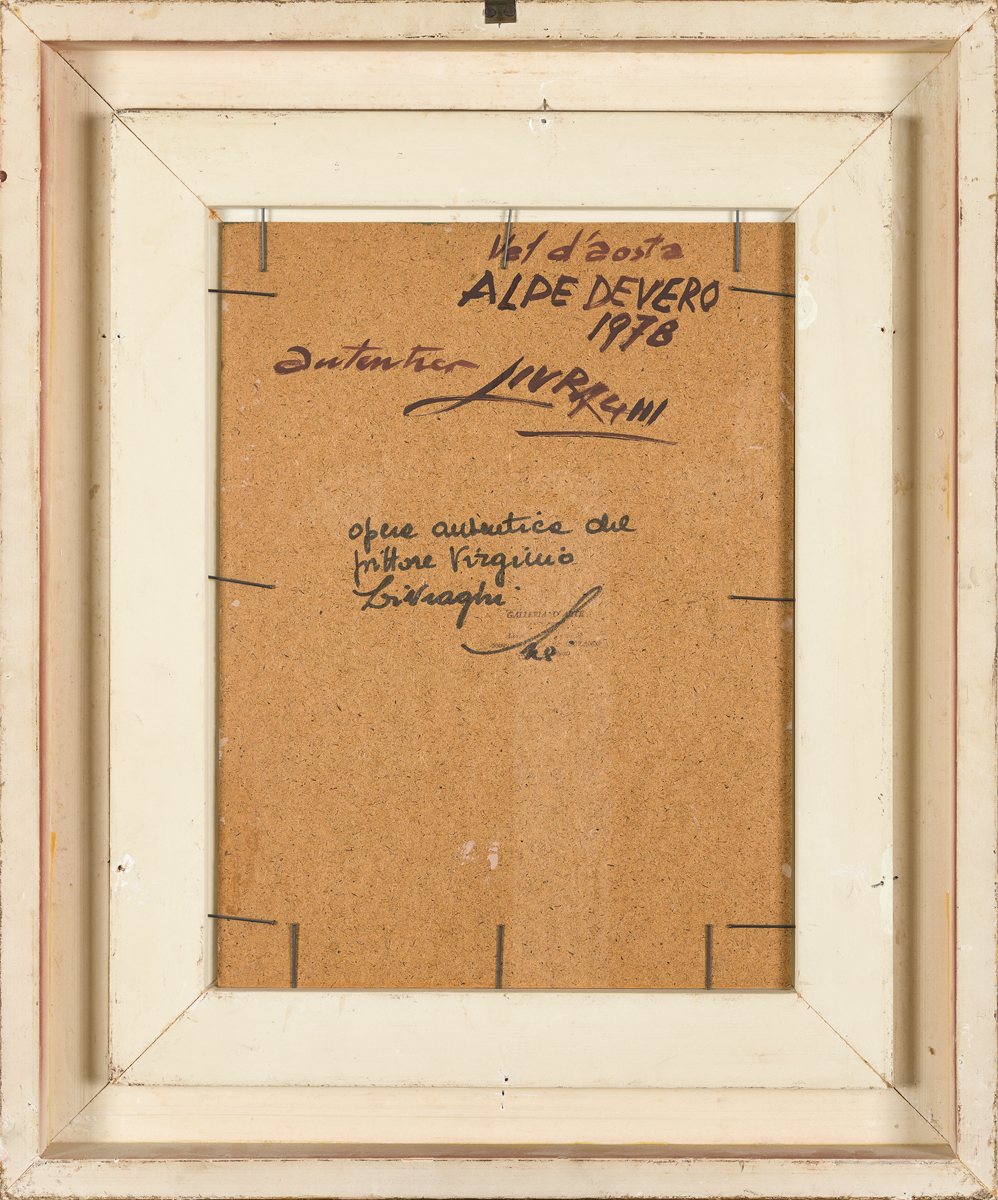 Val d'aosta
ALPE DEVERO
1978
autentica
LIVRAGHI
opera autentica del
pittore Virginio
Livraghi
GALLERIA D'ARTE